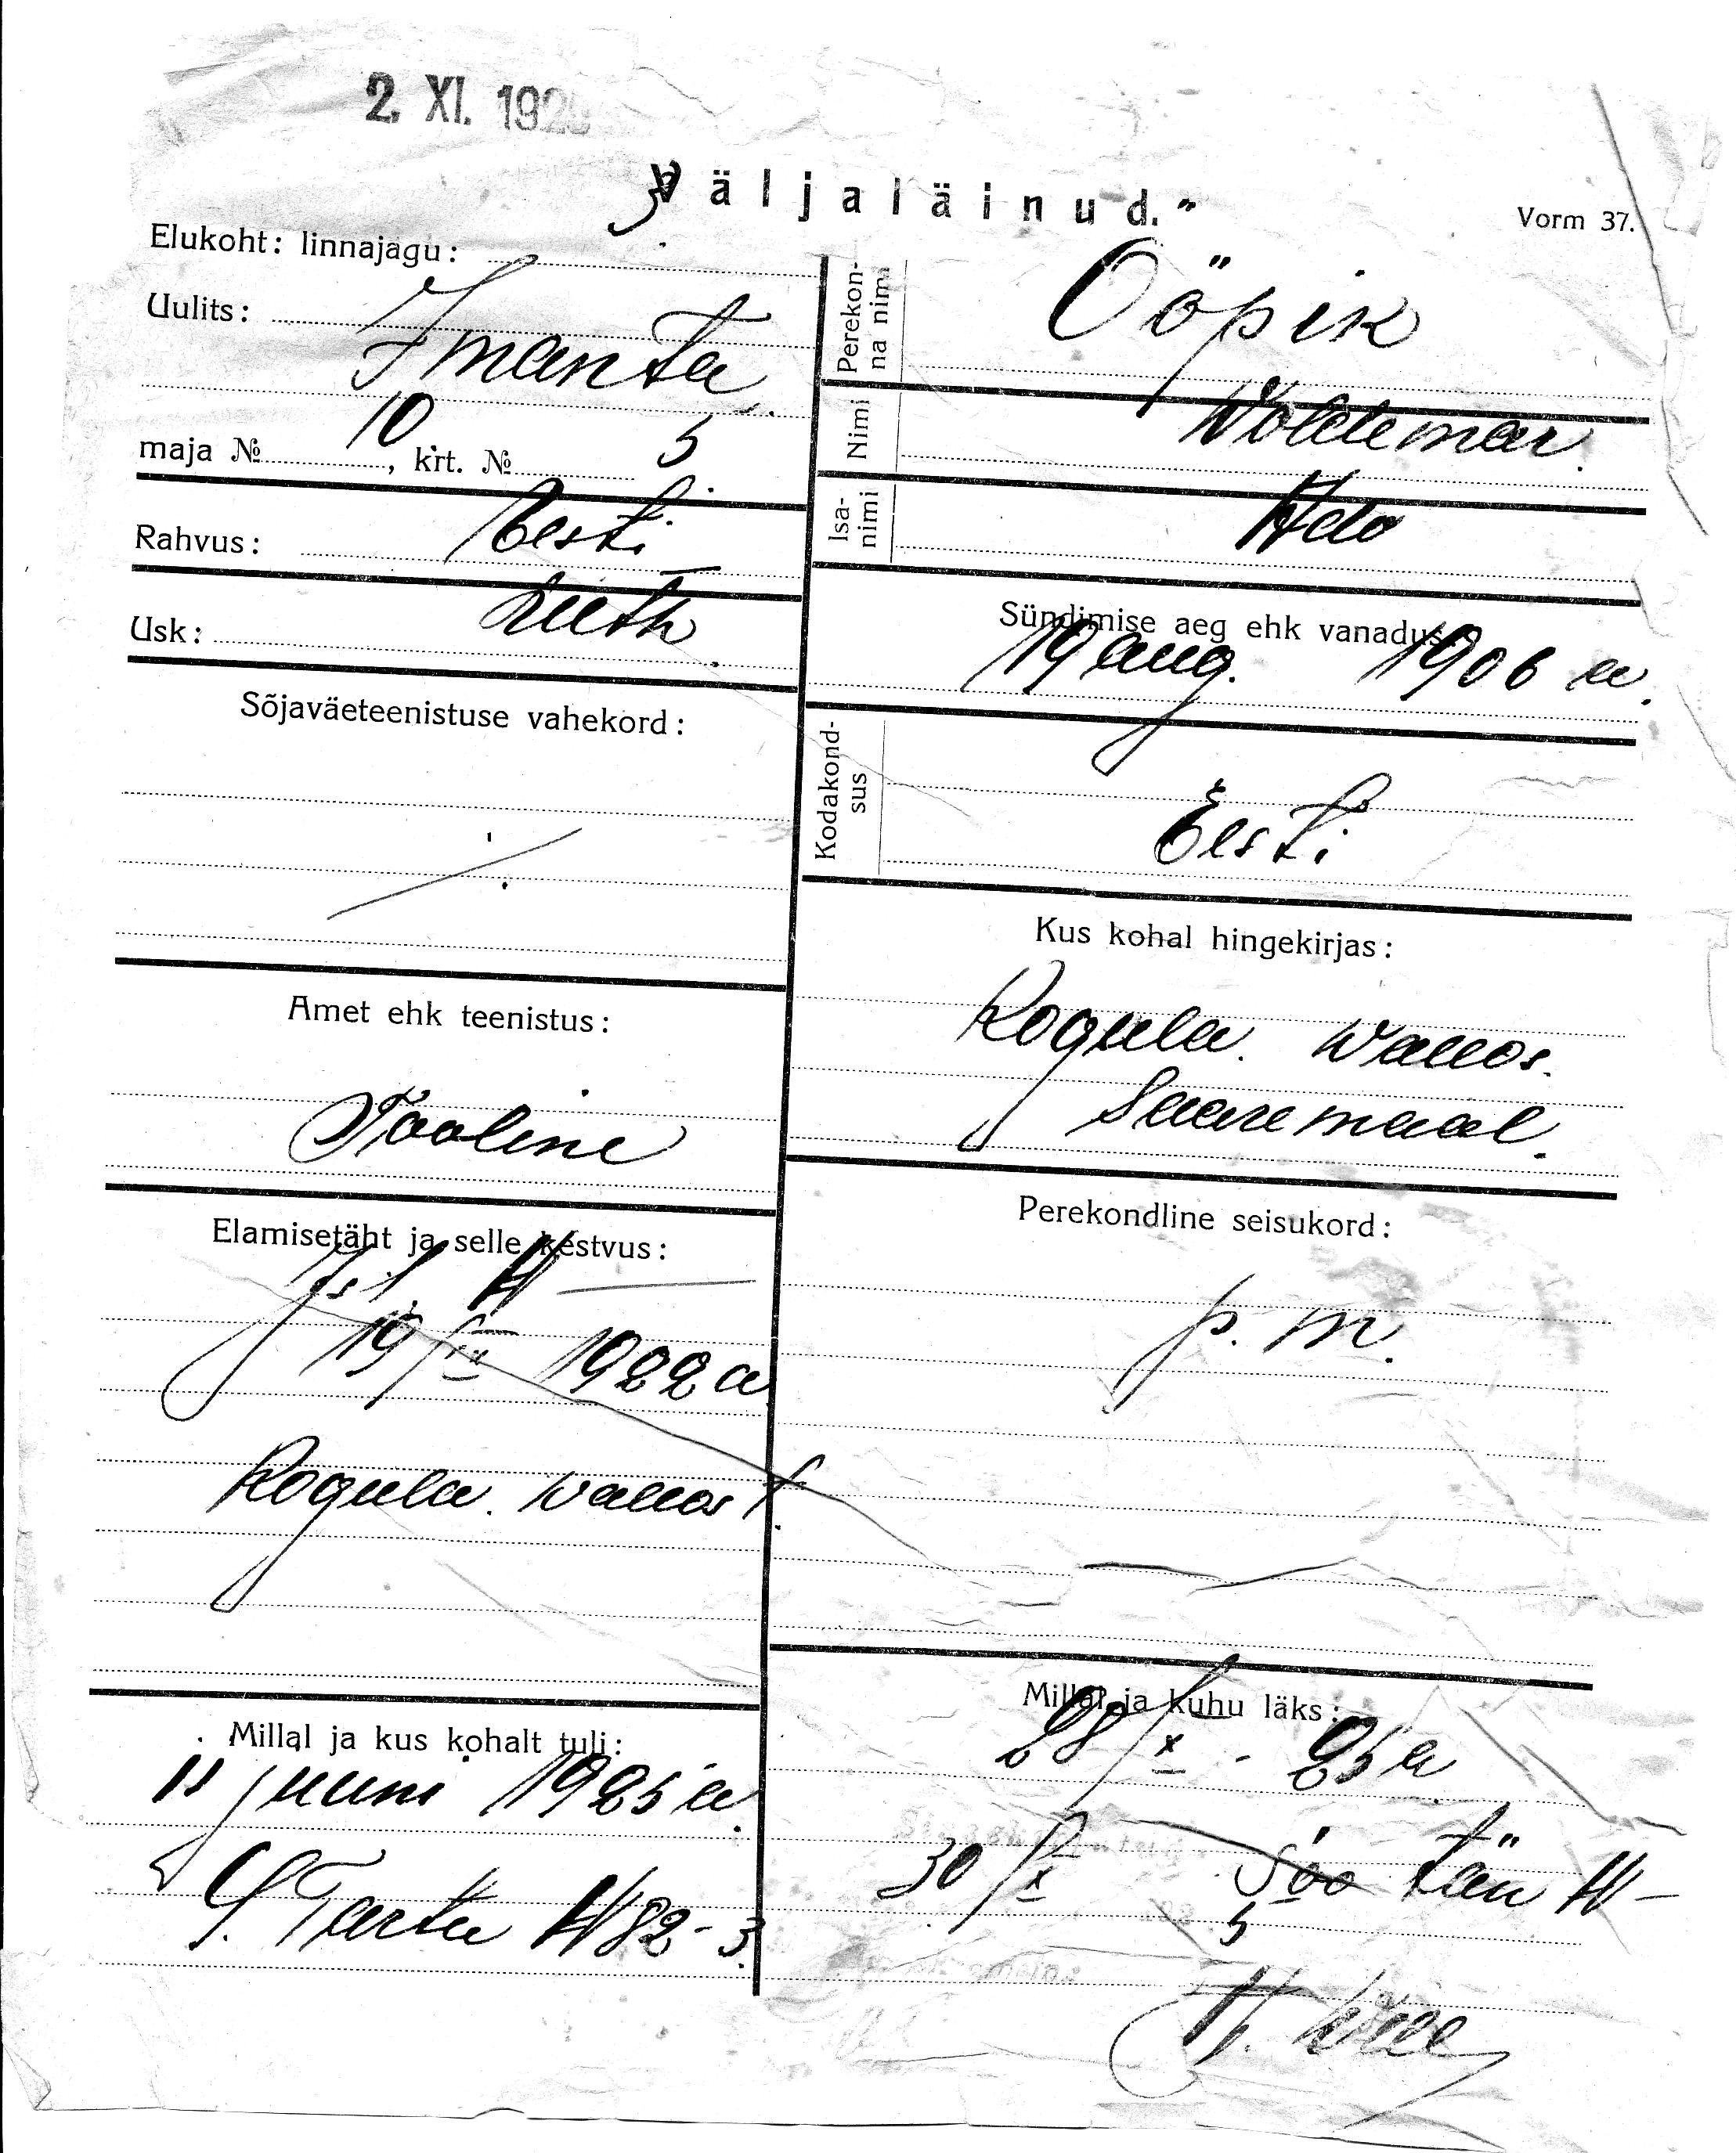 2. XI. 192
Väljaläinud."
Vorm 37.
Elukoht: linnajagu:
Uulits: Imanta
maja № 10, krt. № 5
Rahvus: Eesti
Usk: Luth.
Sõjaväeteenistuse vahekord:
Amet ehk teenistus:
Tööline
Elamisetäht ja selle kestvus:
19 1922 a
Kogula. wallast.
Millal ja kus kohalt tuli:
11 juuni 1925 a.
S. Tartu № 82-3.
Perekonna nimi
Oöpik
Nimi
Woldemar.
Isanimi
Ado
Sündimise aeg ehk vanadus:
19 aug. 1906 a.
Kodakondsus
Eesti
Kus kohal hingekirjas:
Kogula. wallas.
Saaremaal.
Perekondline seisukord:
p. m.
Millal ja kuhu läks:
28/X - 25 a
30/X Soo tän №
5